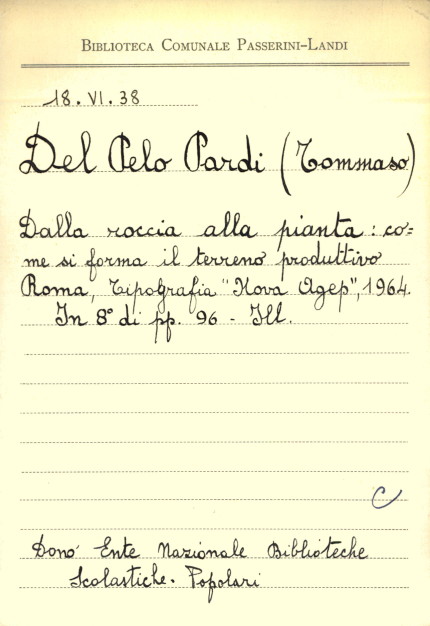 BIBLIOTECA COMUNALE PASSERINI-LANDI
18. VI. 38
Del Pelo Pardi (Tommaso)
Dalla roccia alla pianta : co=
me si forma il terreno produttivo
Roma, Tipografia "Nova Agep", 1964.
In 8° di pp. 96 - Ill.
C
Donò Ente Nazionale Biblioteche
Scolastiche. Popolari